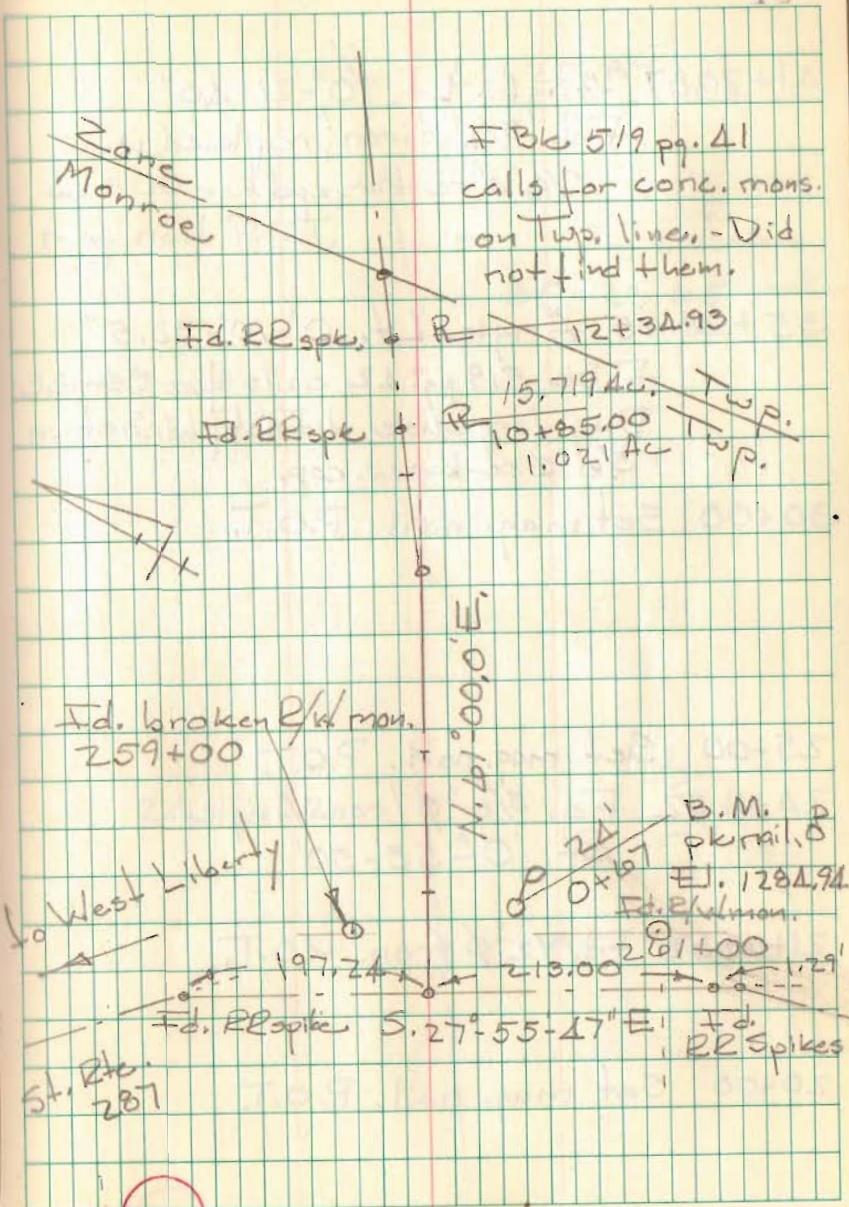 Zane
Monroe
F Bk 519 pg. 41
calls for conc. mons.
on Twp. line. - Did
not find them.
Fd. RR spk.
12+34.93
15.719 Ac.
Twp.
Fd. RR spk
10+85.00
Twp.
1.021 Ac
N. 61°-00.0' E.
Fd. broken R/W mon.
259+00
B.M.
24'
pk nail,
0+67
El. 1284.94
to West Liberty
Fd. R/W mon.
261+00
197.24
213.00
1.29'
Fd. RR spike
S. 27°-55-47" E.
Fd.
RR Spikes
St. Rte.
287